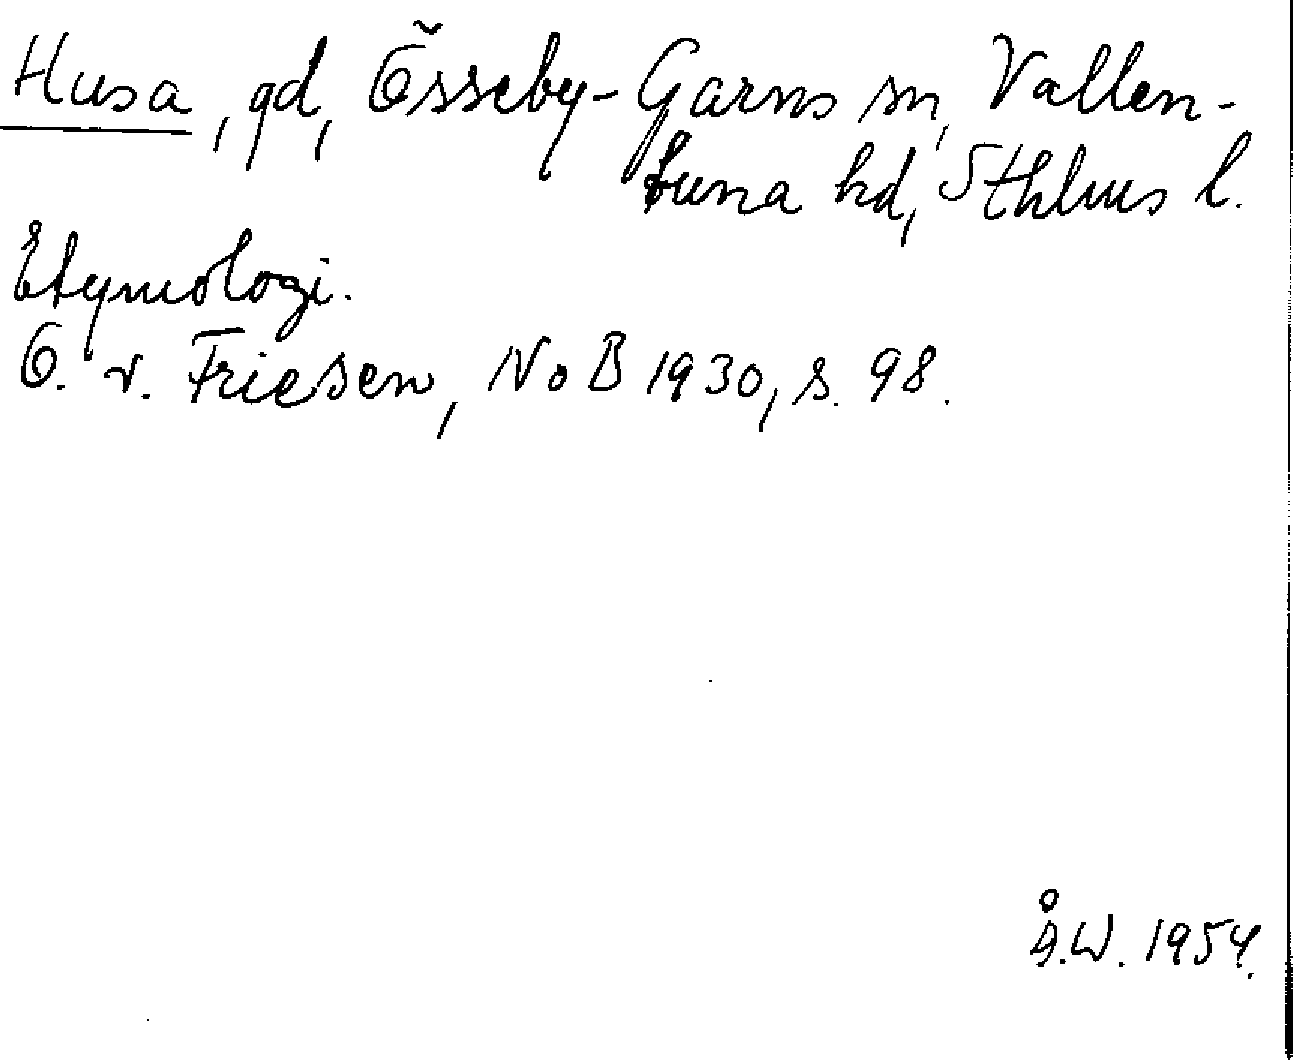 Husa, gd, Össeby-Garns sn, Vallen-
tuna hd, Sthlms l.
Etymologi.
O. v. Friesen, NoB 1930, s. 98.
Å.W. 1954.